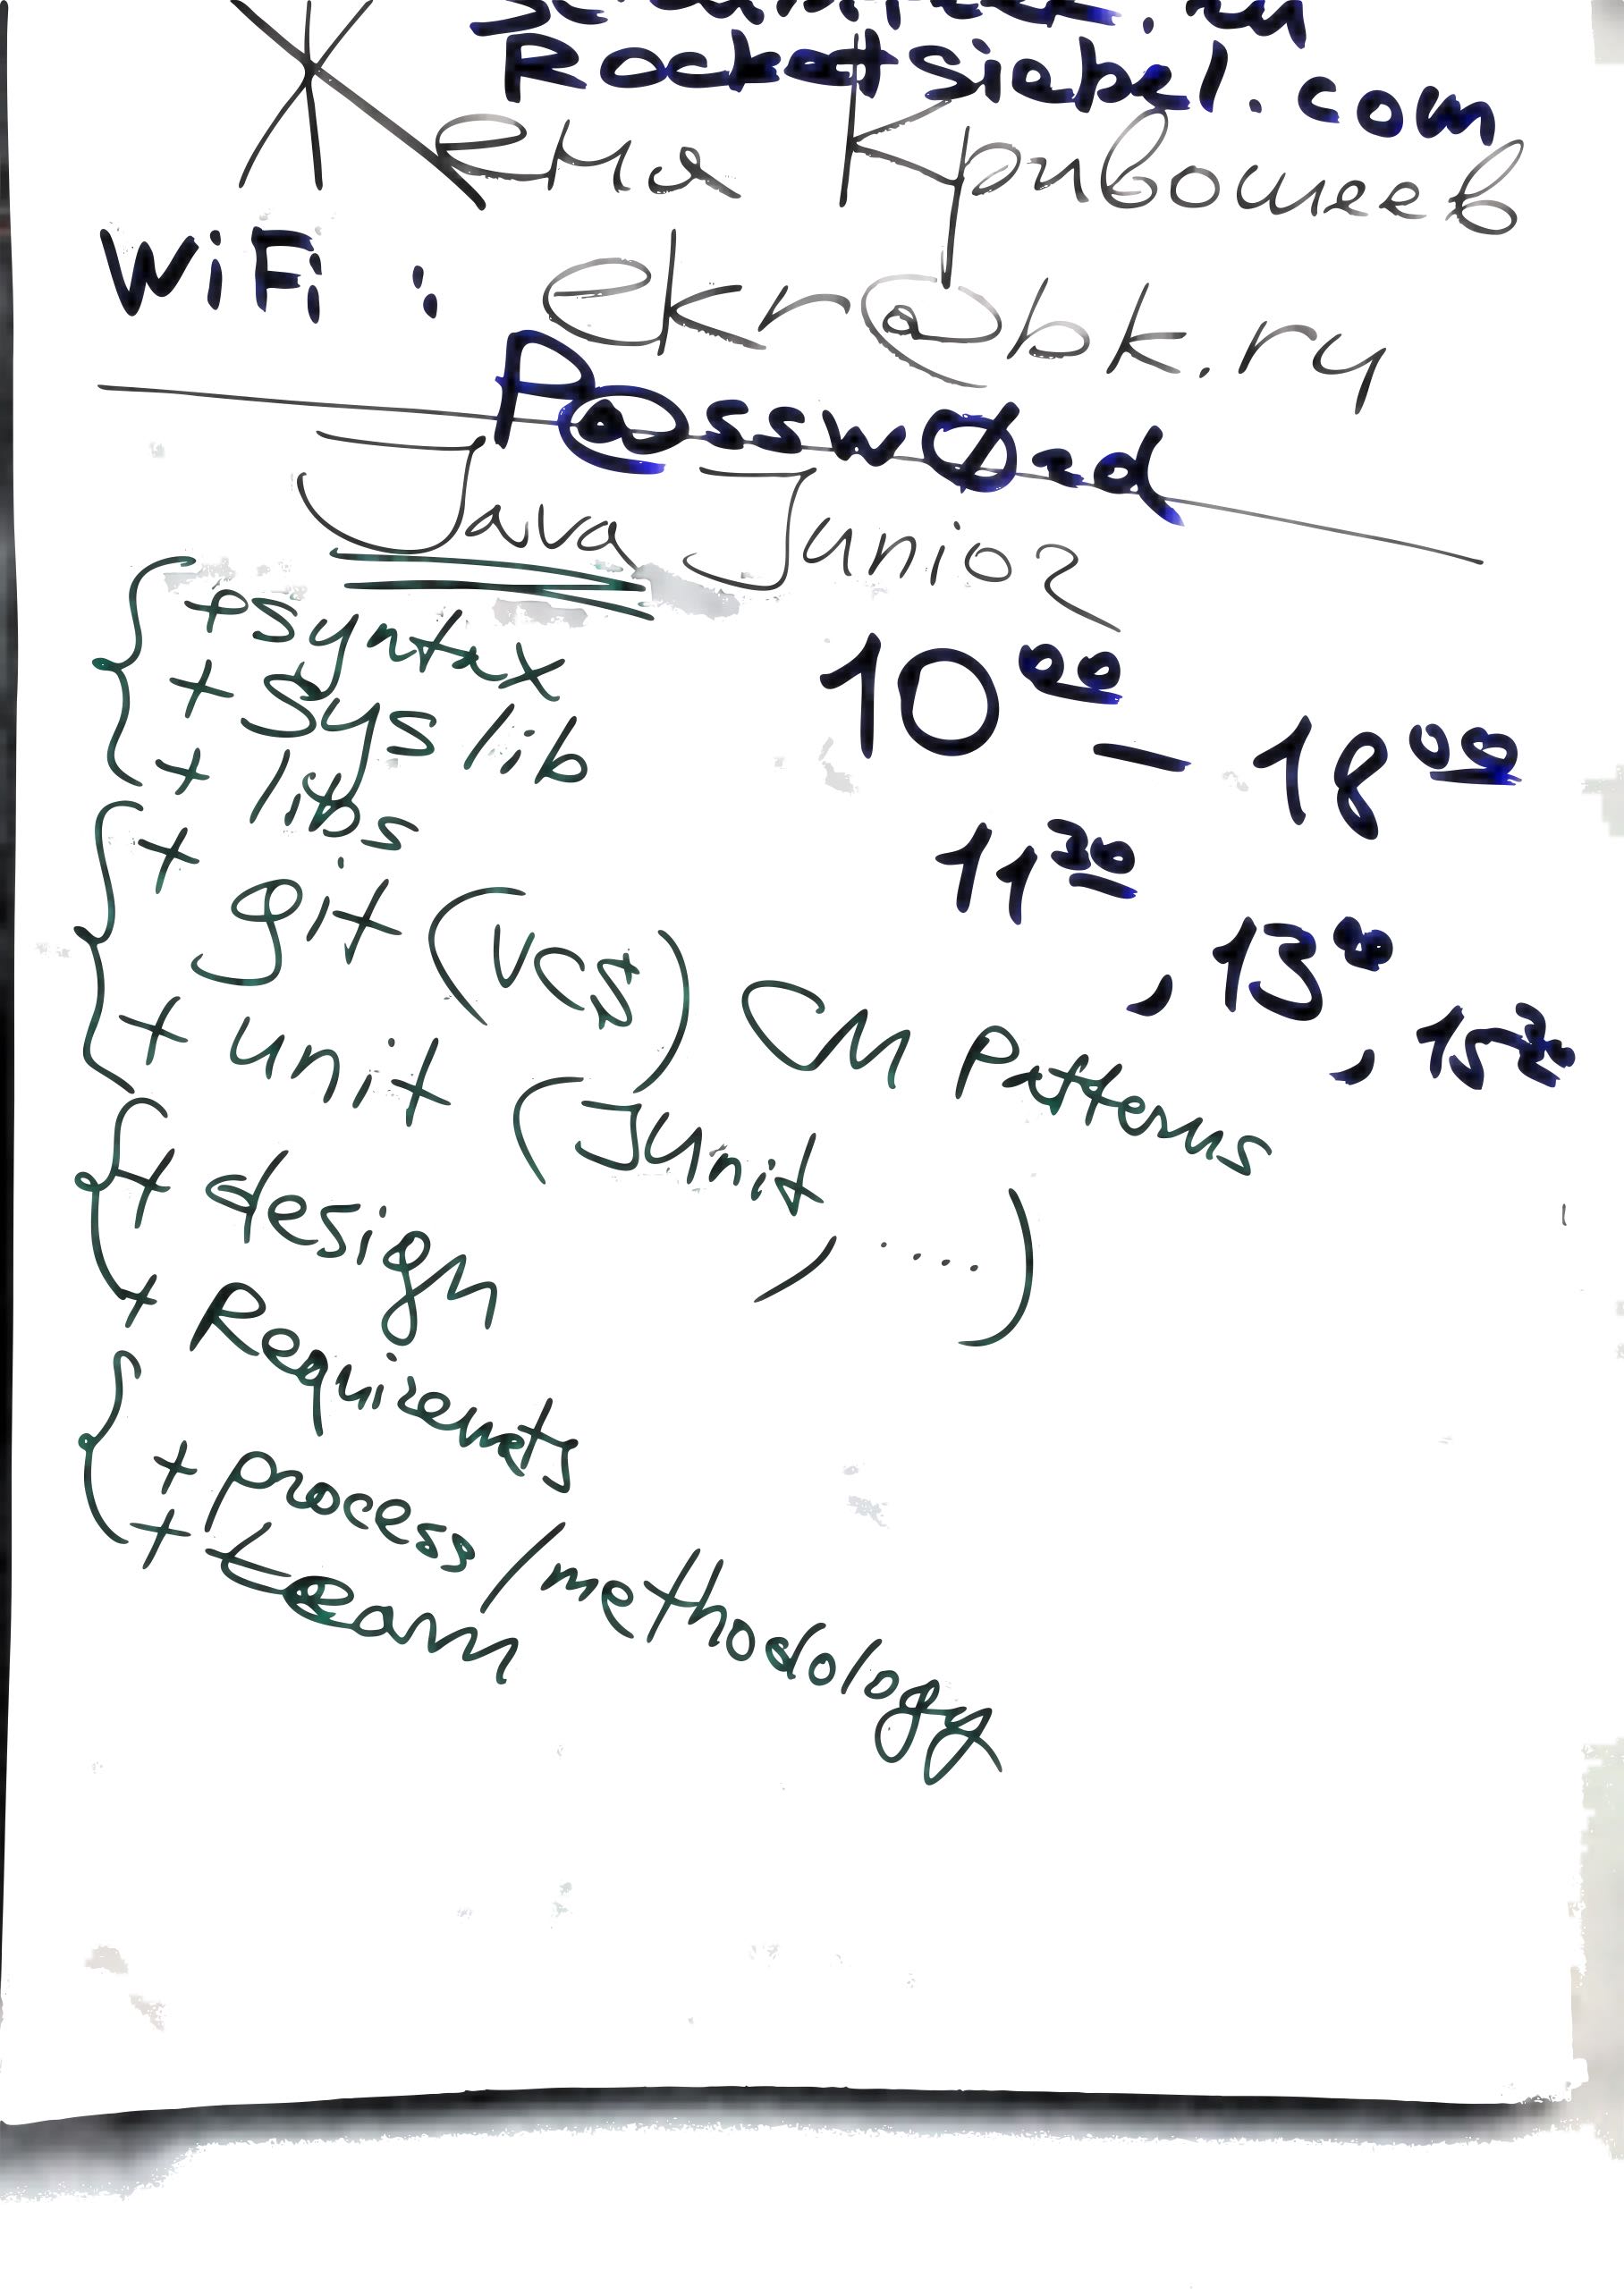 RocketSiebel.com
Женя Кривошеев
WiFi :
ekr@bk.ru
P@sswØrd
Java Junior
+ syntax
+ Sys lib
+ libs
+ git (VCS) CM Patterns
+ unit (JUnit, ....)
+ design
+ Requiremets
+ process/methodology
+ team
10 00 – 18 00
11 30, 13 00, 15 30